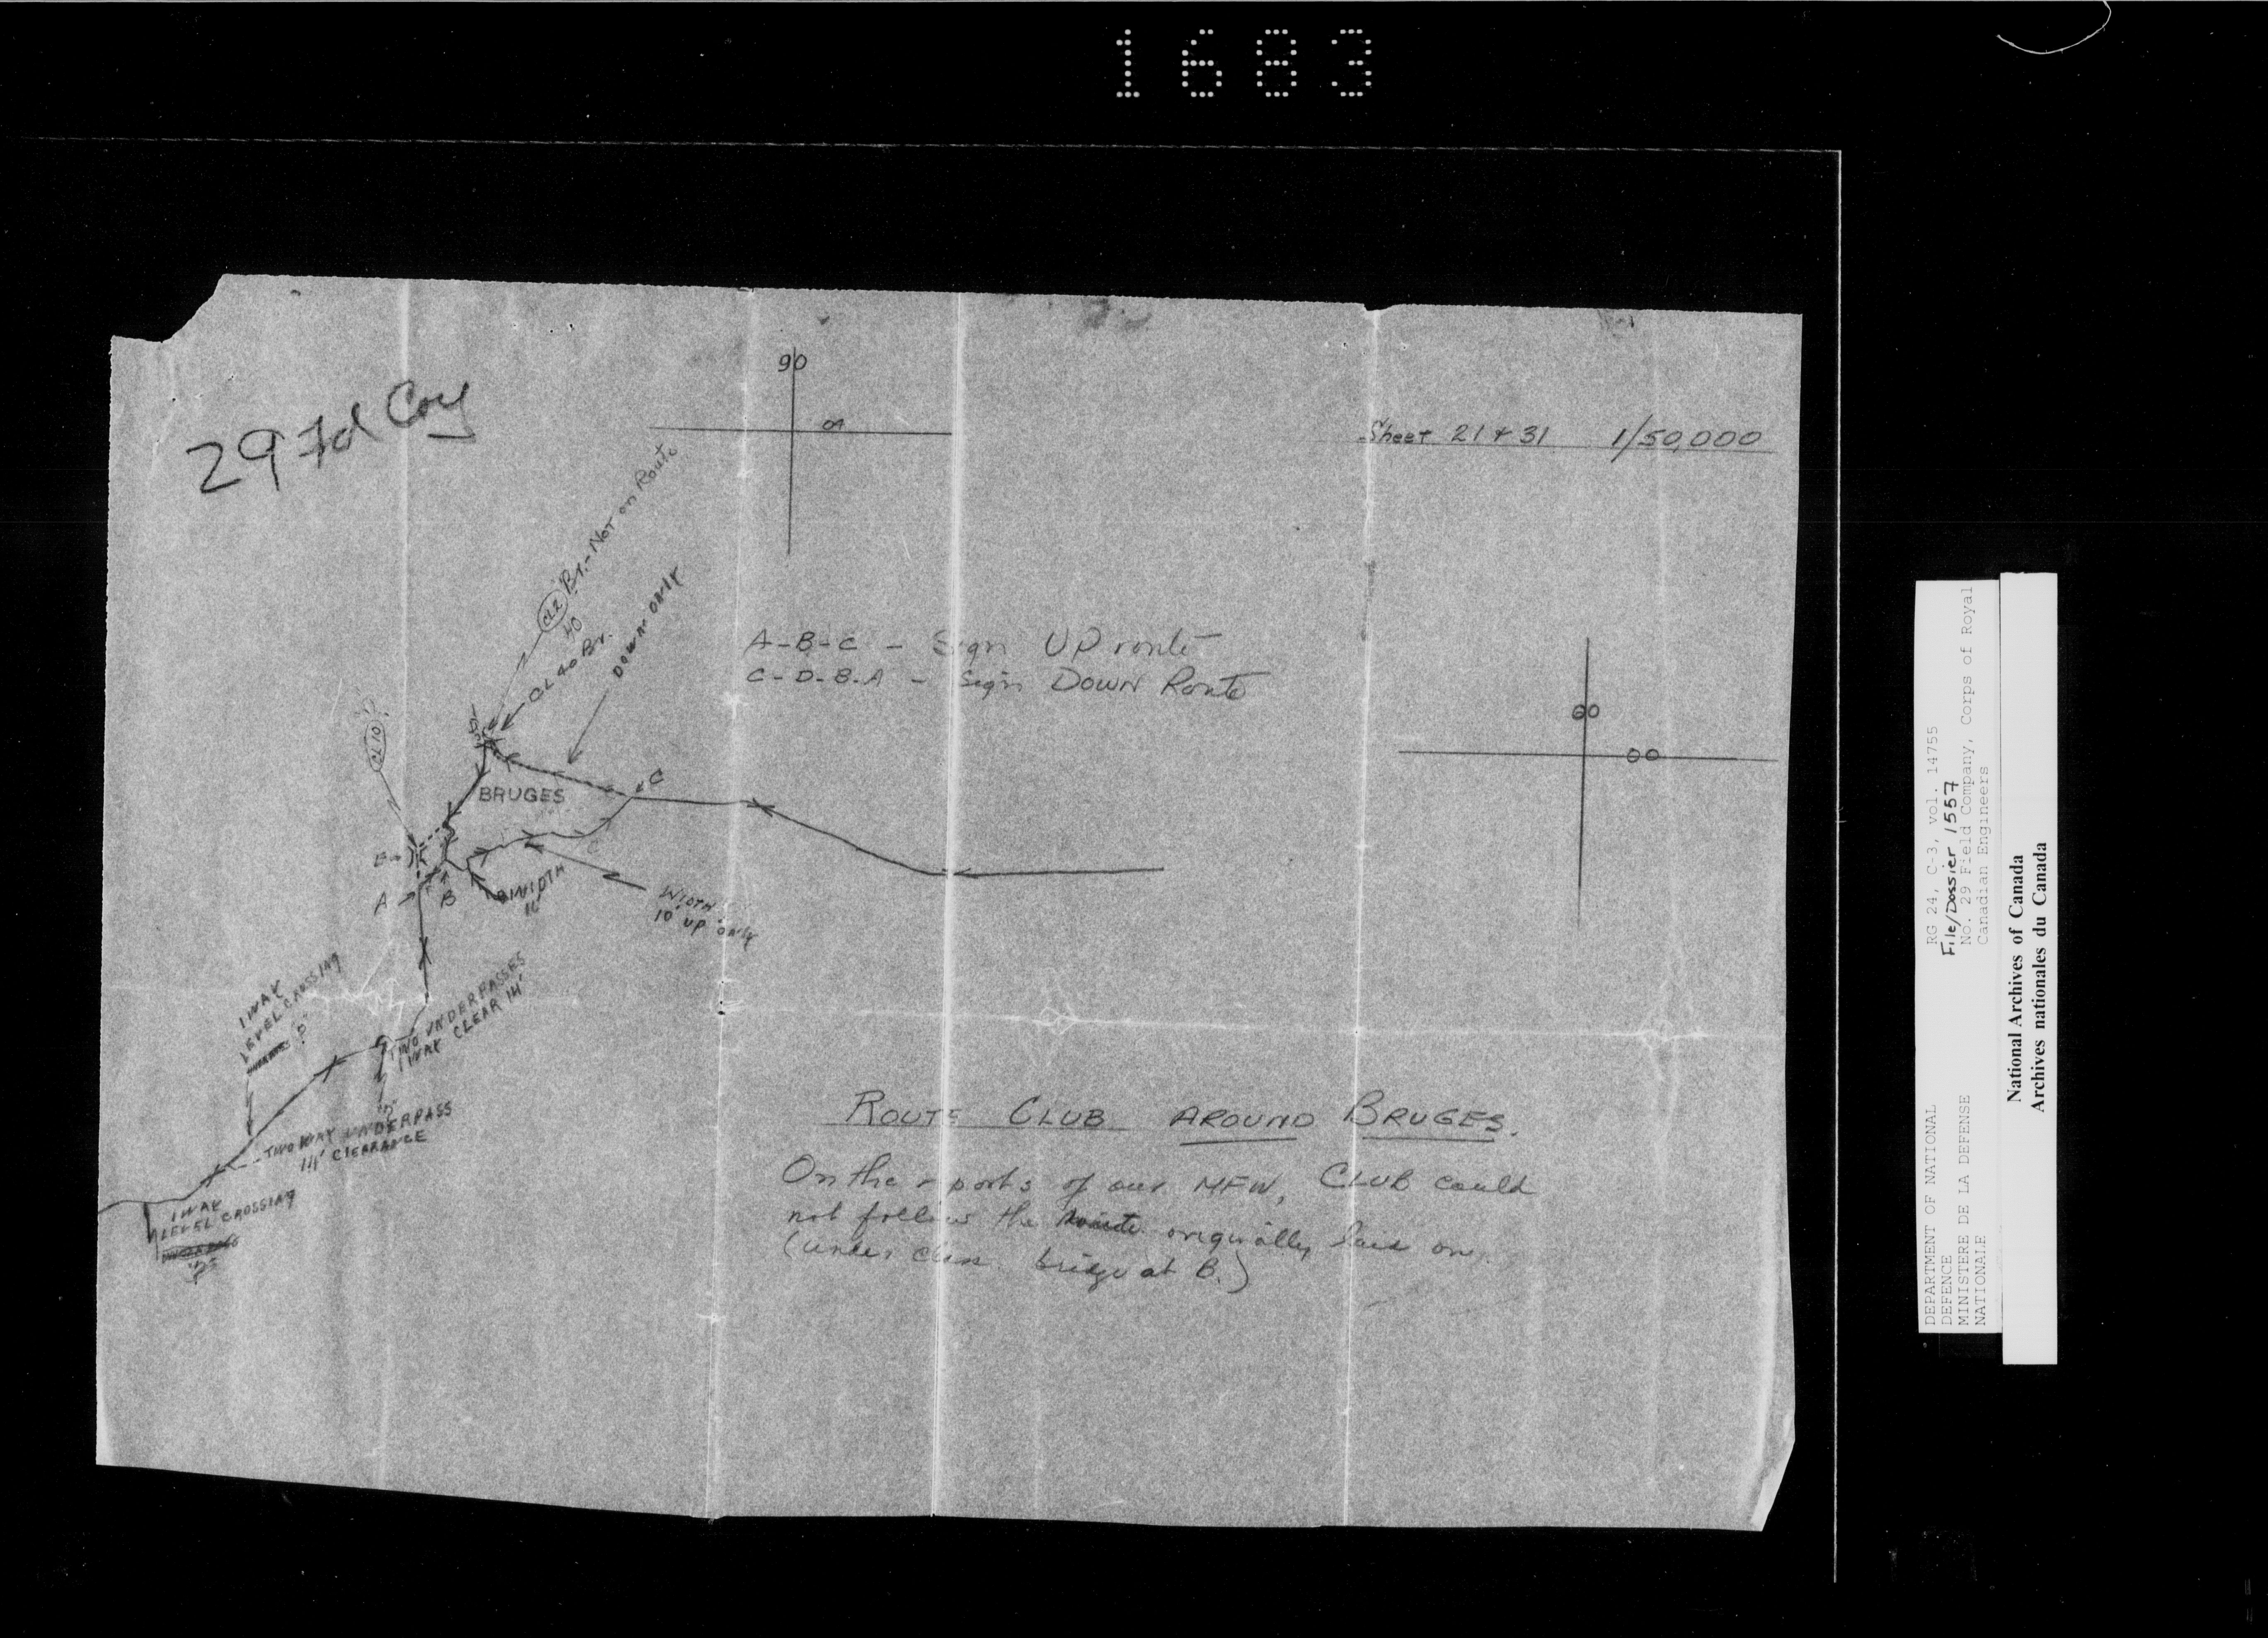 1683
29 Fd Coy
90
09
Sheet 21 & 31 1/50,000
CL2 Br.- Not on Route
40
CL 40 Br.
DOWN ONLY
A-B-C - Sign UP route
C-D-B-A - Sign DOWN Route
60
00
CL10
BRUGES
C
E
A
B
WIDTH
WIDTH
10' UP ONLY
1 WAY
LEVEL CROSSING
TWO UNDERPASSES
1 WAY CLEAR 14'
TWO WAY UNDERPASS
14' CLEARANCE
1 WAY
LEVEL CROSSING
ROUTE CLUB AROUND BRUGES.
On the reports of our MFW, CLUB could
not follow the route originally laid on
(under class bridge at B.)
RG 24, C-3, vol. 14755
File/Dossier 1557
No. 29 Field Company, Corps of Royal
Canadian Engineers
DEPARTMENT OF NATIONAL
DEFENCE
MINISTERE DE LA DEFENSE
NATIONALE
National Archives of Canada
Archives nationales du Canada